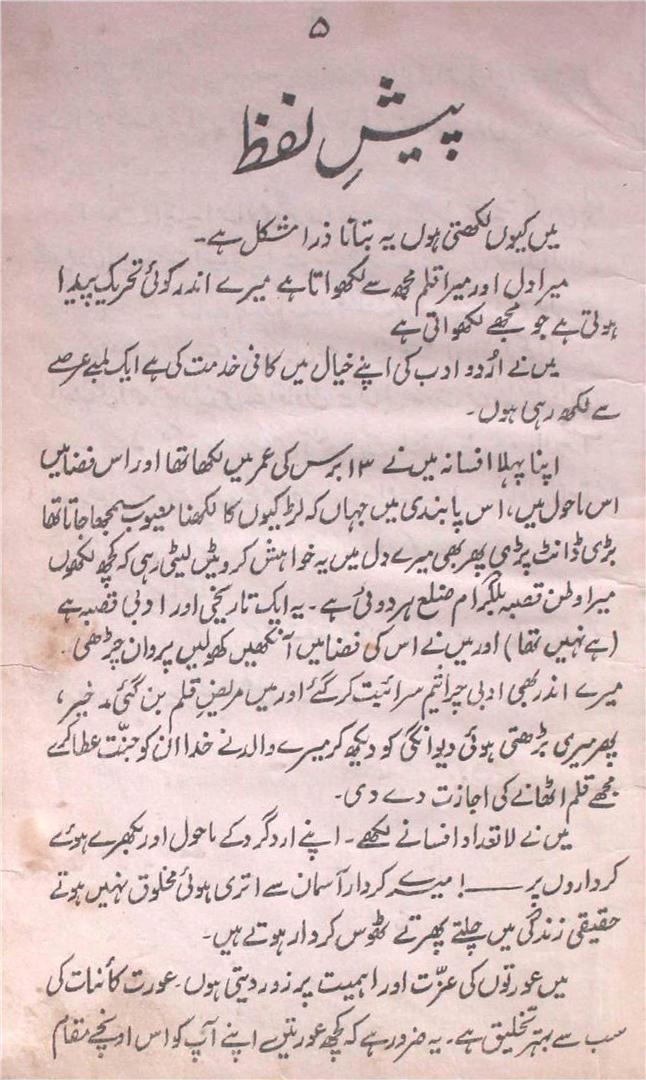 ۵
پیشِ لفظ
میں کیوں لکھتی ہوں یہ بتانا ذرا مشکل ہے۔
میرا دل اور میرا قلم مجھ سے لکھواتا ہے میرے اندر کوئی تحریک پیدا
ہوتی ہے جو مجھے لکھواتی ہے
میں نے اُردو ادب کی اپنے خیال میں کافی خدمت کی ہے ایک لمبے عرصے
سے لکھ رہی ہوں۔
اپنا پہلا افسانہ میں نے ۱۳ برس کی عمر میں لکھا تھا اور اس فضا میں
اس ماحول میں، اس پابندی میں جہاں کہ لڑکیوں کا لکھنا معیوب سمجھا جاتا تھا
بڑی ڈانٹ پڑی پھر بھی میرے دل میں یہ خواہش کروٹیں لیتی رہی کہ کچھ لکھوں
میرا وطن قصبہ بلگرام ضلع ہردوئی ہے۔ یہ ایک تاریخی اور ادبی قصبہ ہے
(ہے نہیں تھا) اور میں نے اس کی فضا میں آنکھیں کھولیں پروان چڑھی۔
میرے اندر بھی ادبی جراثیم سرائیت کر گئے اور میں مریضِ قلم بن گئی۔ خیر،
پھر میری بڑھتی ہوئی دیوانگی کو دیکھ کر میرے والد نے خدا ان کو جنّت عطا کرے
مجھے قلم اٹھانے کی اجازت دے دی۔
میں نے لاتعداد افسانے لکھے۔ اپنے ارد گرد کے ماحول اور بکھرے ہوئے
کرداروں پر ——! میرے کردار آسمان سے اتری ہوئی مخلوق نہیں ہوتے
حقیقی زندگی میں چلتے پھرتے ٹھوس کردار ہوتے ہیں۔
میں عورتوں کی عزّت اور اہمیت پر زور دیتی ہوں۔ عورت کائنات کی
سب سے بہتر تخلیق ہے۔ یہ ضرور ہے کہ کچھ عورتیں اپنے آپ کو اس اونچے مقام